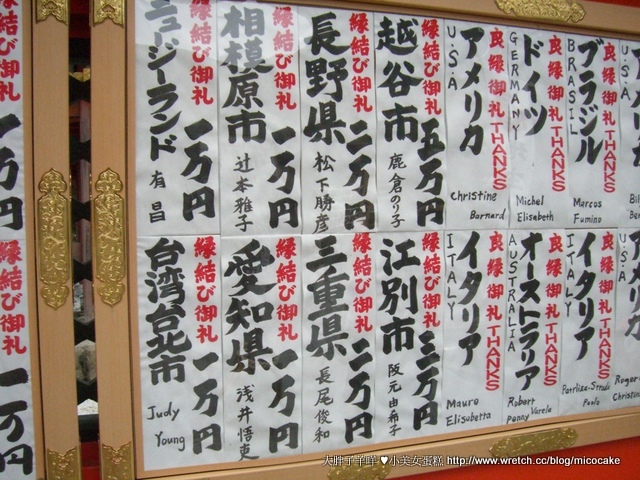 縁結び御礼
ニュージーランド
一万円
有昌
縁結び御礼
相模原市
一万円
辻本雅子
縁結び御礼
長野県
二万円
松下勝彦
縁結び御礼
越谷市
五万円
鹿倉のり子
良縁御礼THANKS
アメリカ
U.S.A
Christine
Barnard
良縁御礼THANKS
ドイツ
GERMANY
Michel
Elisabeth
良縁御礼THANKS
ブラジル
BRASIL
Marcos
Fumino
U.S.A
縁結び御礼
台湾台北市
一万円
Judy
Young
縁結び御礼
愛知県
一万円
浅井悟吏
縁結び御礼
三重県
二万円
長尾俊和
縁結び御礼
江別市
三万円
阪元由希子
良縁御礼THANKS
イタリア
ITALY
Mauro
Elisabetta
良縁御礼THANKS
オーストラリア
AUSTRALIA
Robert
Penny Varela
良縁御礼THANKS
イタリア
ITALY
Paolo
U.S.A
一万円
一万円
大胖子羊咩 ♥小美女蛋糕 http://www.wretch.cc/blog/micocake
http://www.wretch.cc/blog/